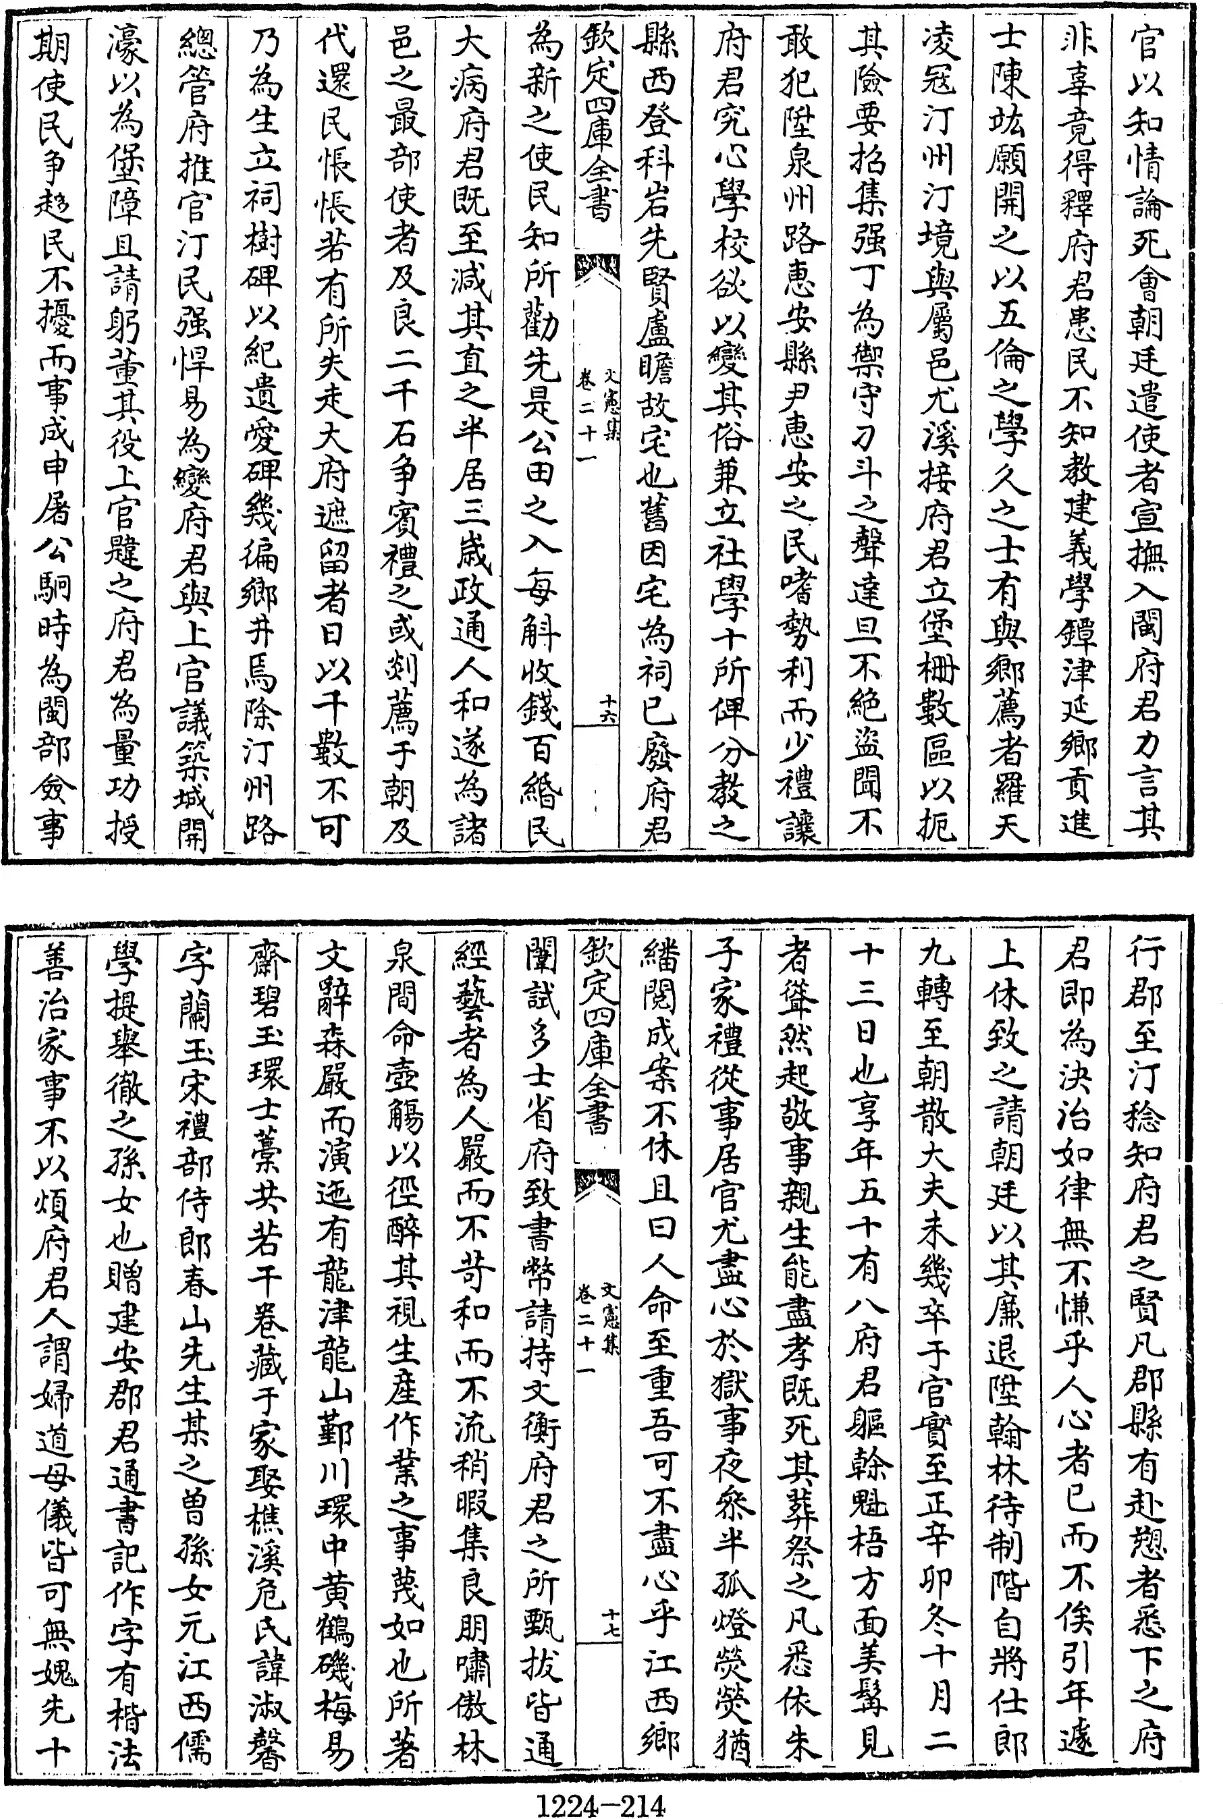 官以知情論死會朝廷遣使者宣撫入閩府君力言其
非辜竟得釋府君患民不知教建義學鐔津延鄉貢進
士陳竑願開之以五倫之學久之士有與鄉薦者羅天
凌冦汀州汀境與屬邑尤溪接府君立堡栅數區以扼
其險要招集强丁為禦守刀斗之聲達旦不絶盜聞不
敢犯陞泉州路惠安縣尹惠安之民嗜勢利而少禮讓
府君究心學校欲以變其俗兼立社學十所俾分教之
縣西登科岩先賢盧瞻故宅也舊因宅為祠已廢府君
欽定四庫全書
文憲集
卷二十一
十六
為新之使民知所勸先是公田之入每斛收錢百緡民
大病府君既至減其直之半居三歲政通人和遂為諸
邑之最部使者及良二千石争賓禮之或剡薦于朝及
代還民悵悵若有所失走大府遮留者日以千數不可
乃為生立祠樹碑以紀遺愛碑幾徧鄉井焉除汀州路
總管府推官汀民强悍易為變府君與上官議築城開
濠以為堡障且請躬董其役上官韙之府君為量功授
期使民争趍民不擾而事成申屠公駉時為閩部僉事
行郡至汀稔知府君之賢凡郡縣有赴愬者悉下之府
君即為決治如律無不慊乎人心者已而不俟引年遽
上休致之請朝廷以其廉退陞翰林待制階自將仕郎
九轉至朝散大夫未幾卒于官實至正辛卯冬十月二
十三日也享年五十有八府君軀榦魁梧方面美髯見
者聳然起敬事親生能盡孝既死其葬祭之凡悉依朱
子家禮從事居官尤盡心於獄事夜叅半孤燈熒熒猶
繙閱成案不休且曰人命至重吾可不盡心乎江西鄉
欽定四庫全書
文憲集
卷二十一
十七
闈試多士省府致書幣請持文衡府君之所甄拔皆通
經藝者為人嚴而不苛和而不流稍暇集良朋嘯傲林
泉間命壺觴以徑醉其視生產作業之事蔑如也所著
文辭森嚴而演迤有龍津龍山鄞川環中黄鶴磯梅易
齋碧玉環士藁共若干卷藏于家娶樵溪危氏諱淑馨
字蘭玉宋禮部侍郎春山先生某之曽孫女元江西儒
學提舉徹之孫女也贈建安郡君通書記作字有楷法
善治家事不以煩府君人謂婦道母儀皆可無媿先十
1224-214